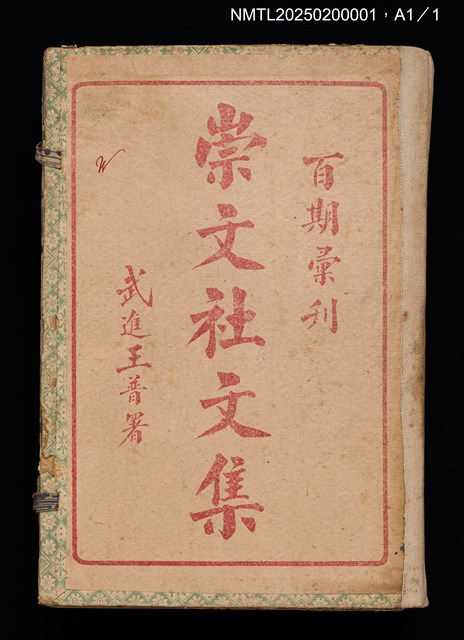 NMTL20250200001，A1／1
百期彙刊
崇文社文集
武進王普署